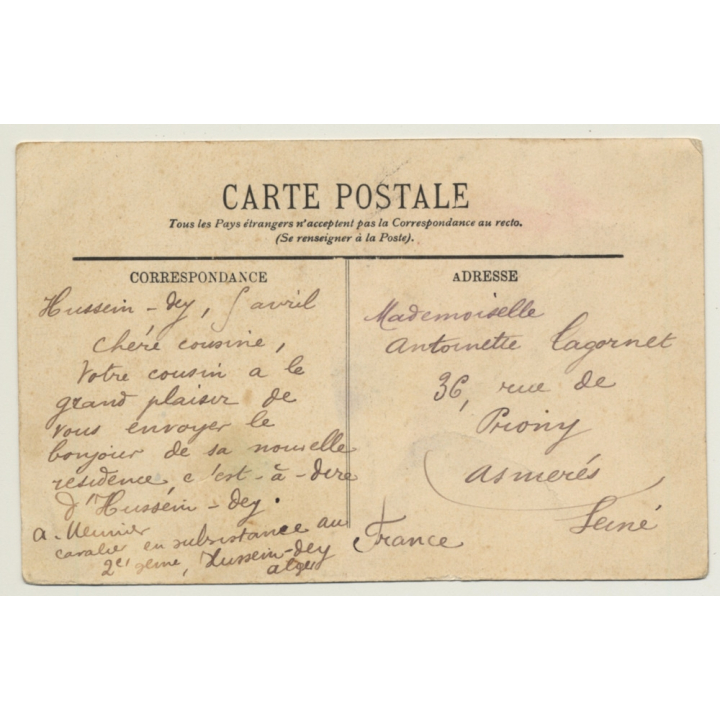 CARTE POSTALE
Tous les Pays étrangers n'acceptent pas la Correspondance au recto.
(Se renseigner à la Poste).
CORRESPONDANCE
Hussein-dey, 5 avril
Chére cousine,
Votre cousin a le
grand plaisir de
vous envoyer le
bonjour de sa nouvelle
residence c'est-à-dire
d'Husséin-dey.
a. Meunier
cavalier en subsistance au
2e génie, Hussein-dey
alger
ADRESSE
Mademoiselle
Antoinette Lagornet
36, rue de
Prony
asnierés
Seine
France